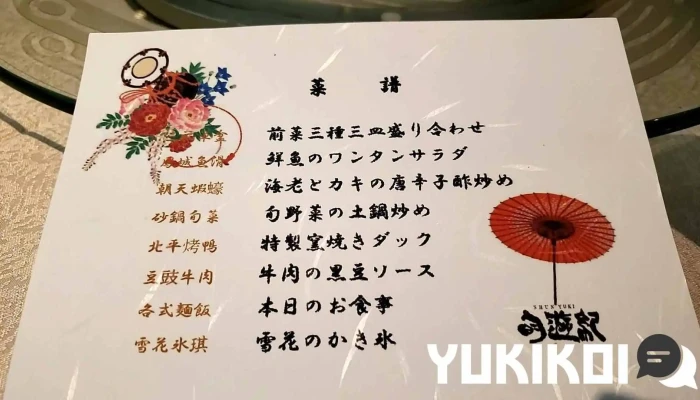 菜 譜
前菜三種三皿盛り合わせ
鮮魚のワンタンサラダ
朝天蝦蠔 海老とカキの唐辛子酢炒め
砂鍋旬菜 旬野菜の土鍋炒め
北平烤鴨 特製窯焼きダック
豆豉牛肉 牛肉の黒豆ソース
各式麺飯 本日のお食事
雪花氷琪 雪花のかき氷
遊記
YUKIKOI